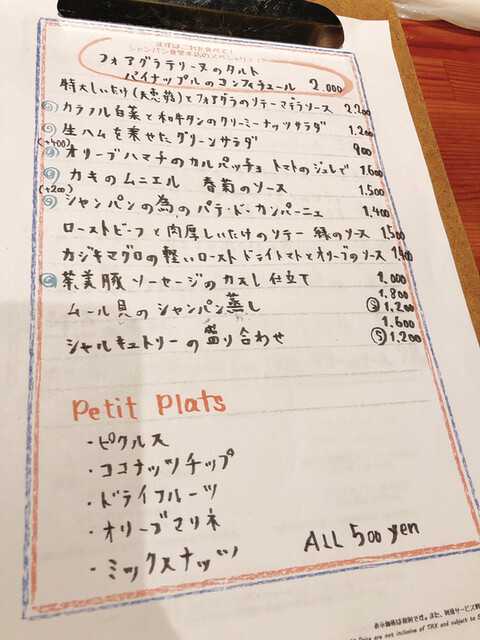 まずはこれを食べて!
シャンパン食堂本店のスペシャリテ!
フォアグラテリーヌのタルト
パイナップルのコンフィチュール 2.000
特大しいたけ(天恵菇)とフォアグラのソテーマデラソース 2.200
カラフル白菜と和牛タンのクリーミーナッツサラダ 1.200
生ハムを乗せたグリーンサラダ 900
(+400)
オリーブハマチのカルパッチョ トマトのジュレで 1.600
カキのムニエル 春菊のソース 1.500
(+200)
シャンパンの為のパテ・ド・カンパーニュ 1.400
ローストビーフと肉厚しいたけのソテー 緑のソース 1.500
カジキマグロの軽いロースト ドライトマトとオリーブのソース 1.400
茶美豚 ソーセージのカスレ仕立て 2.000
1.800
ムール貝のシャンパン蒸し Ⓢ1.200
1.600
シャルキュトリーの盛り合わせ Ⓢ1.200
Petit Plats
・ピクルス
・ココナッツチップ
・ドライフルーツ
・オリーブマリネ
・ミックスナッツ
ALL 500 yen
表示価格は税別です。また、別途サービス料
Price are not inclusive of TAX and subject to S